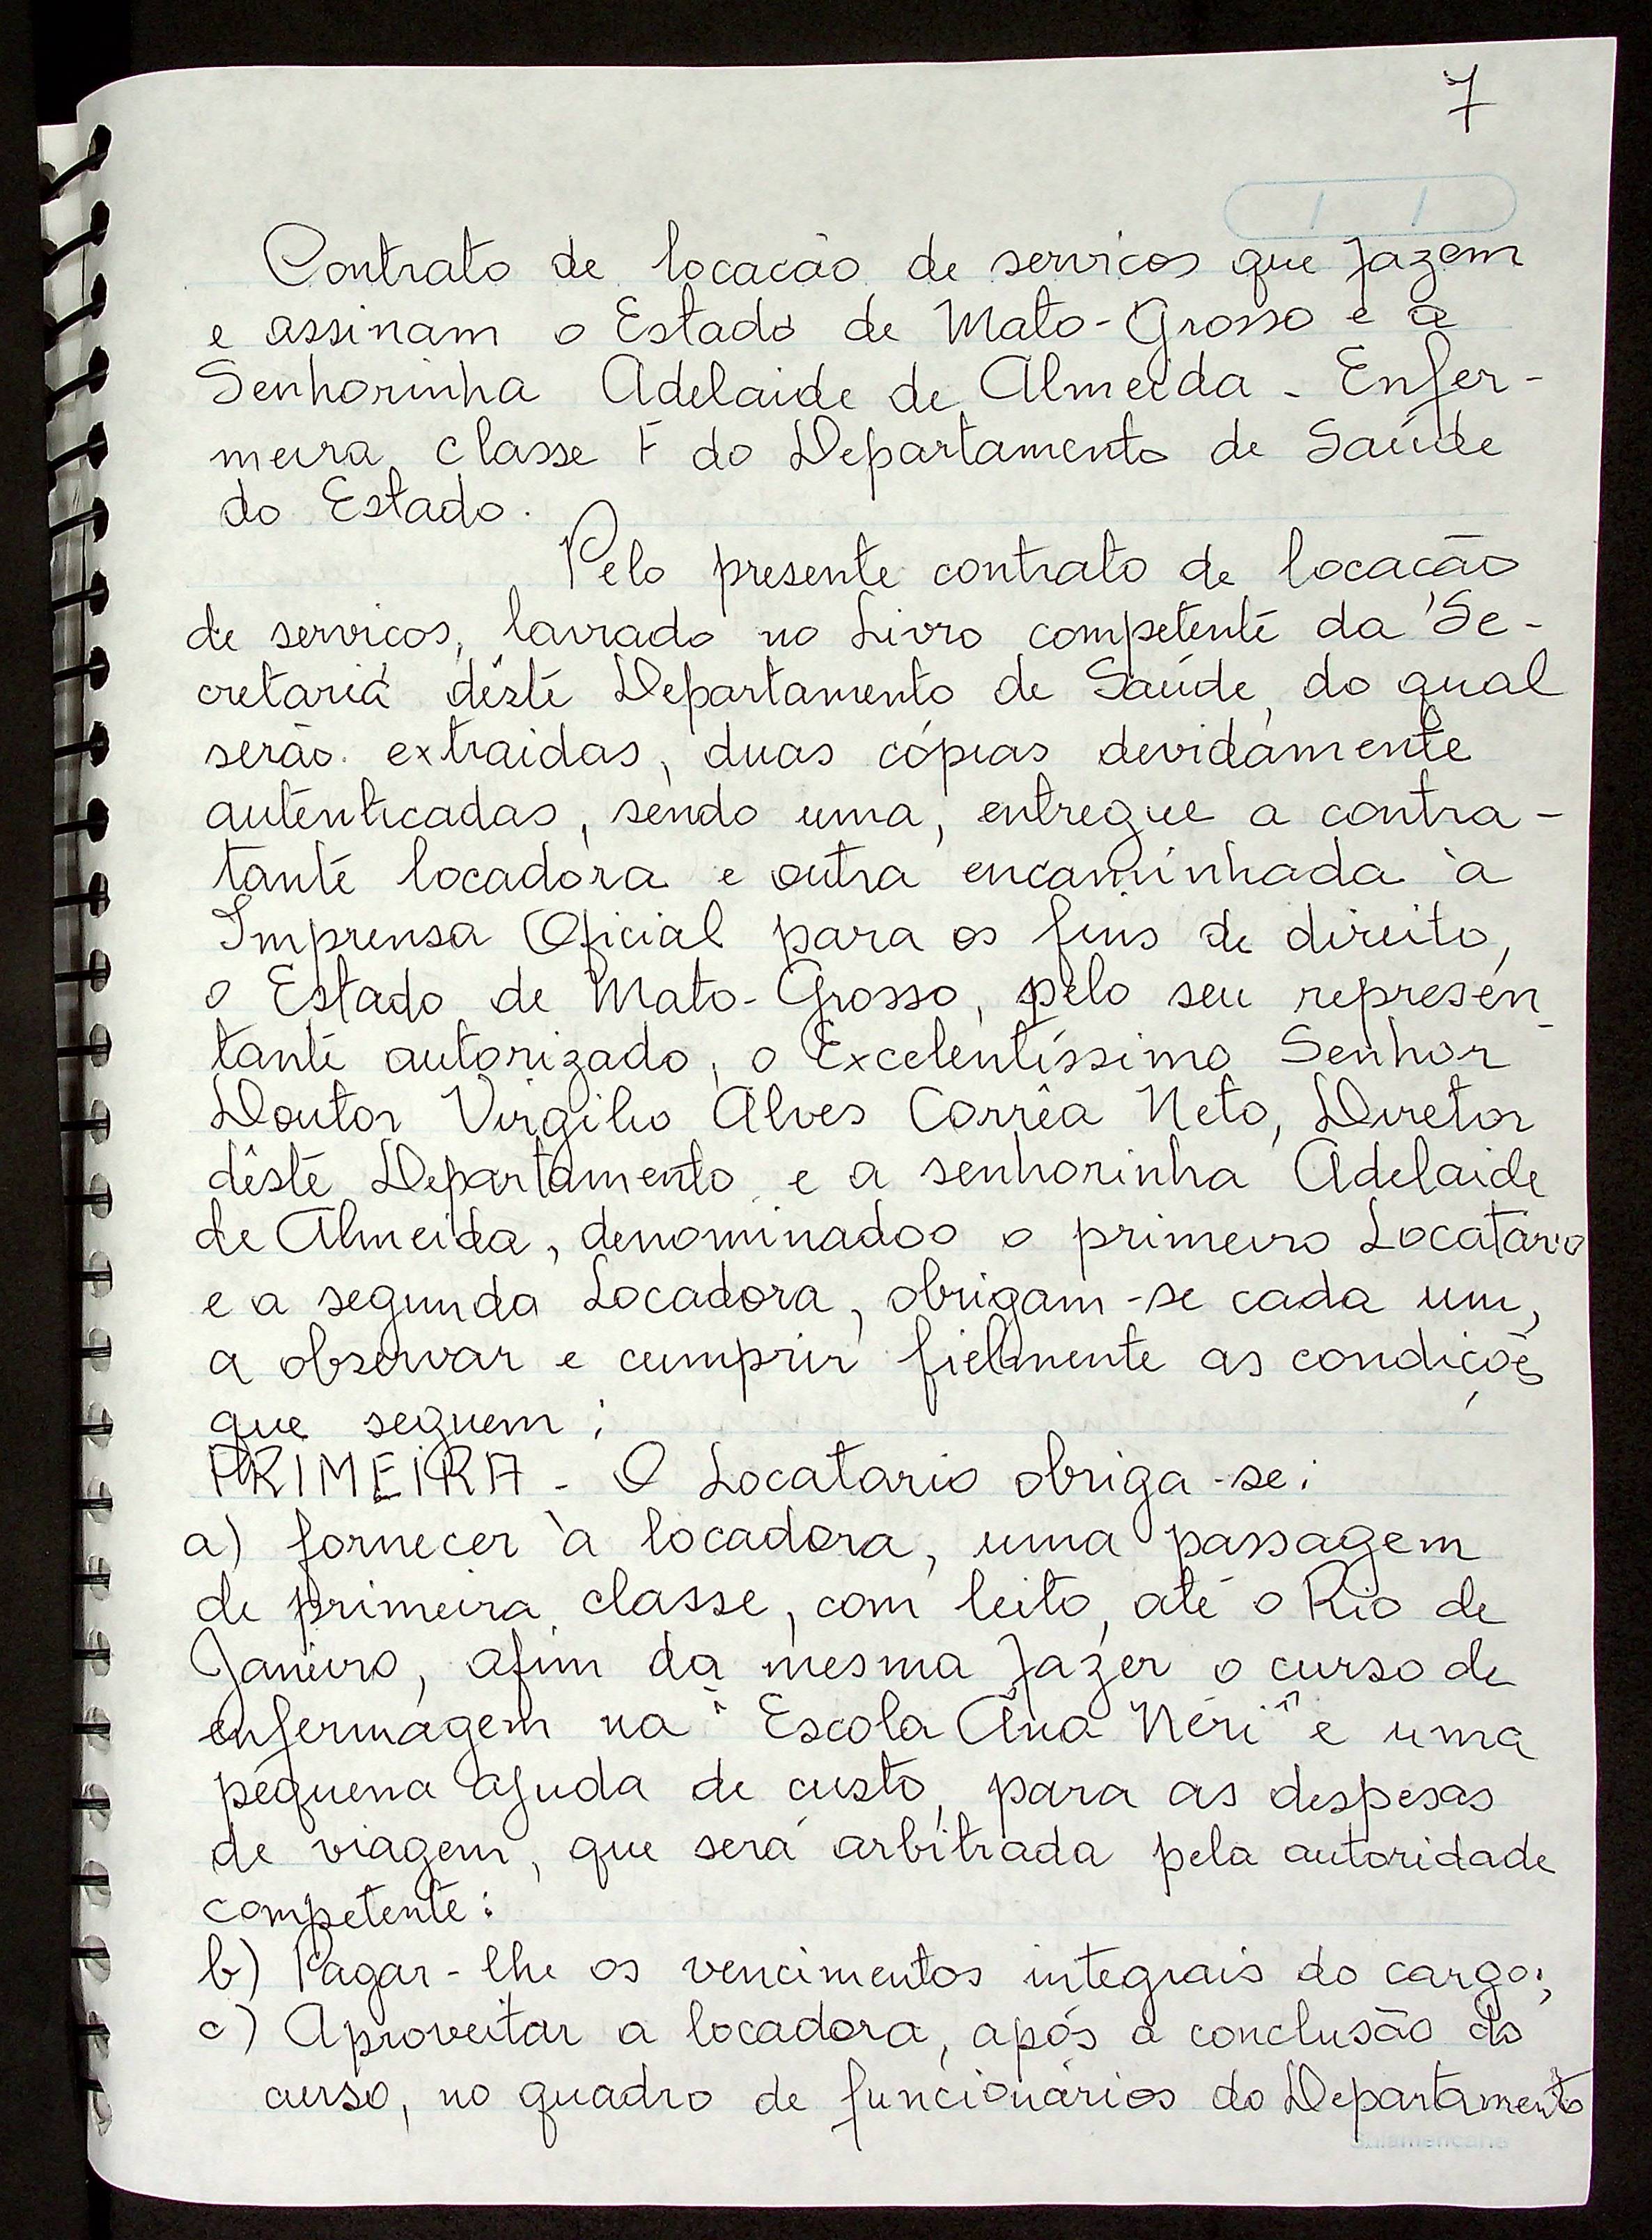 7
Contrato de locação de serviços que fazem
e assinam o Estado de Mato-Grosso e a
Senhorinha Adelaide de Almeida - Enfer-
meira classe F do Departamento de Saúde
do Estado.
Pelo presente contrato de locação
de serviços, lavrado no Livro competente da Se-
cretaria dêste Departamento de Saúde, do qual
serão extraidas, duas cópias devidamente
autenticadas, sendo uma, entregue a contra-
tante locadora e outra encaminhada à
Imprensa Oficial para os fins de direito,
o Estado de Mato-Grosso, pelo seu represen-
tante autorizado, o Excelentíssimo Senhor
Doutor Virgilio Alves Corrêa Neto, Diretor
dêste Departamento e a senhorinha Adelaide
de Almeida, denominados o primeiro Locatário
e a segunda Locadora, obrigam-se cada um,
a observar e cumprir fielmente as condições
que seguem:
PRIMEIRA - O Locatario obriga-se:
a) fornecer à locadora, uma passagem
de primeira classe, com leito, até o Rio de
Janeiro, afim da mesma fazer o curso de
enfermagem na "Escola Ana Néri" e uma
pequena ajuda de custo, para as despesas
de viagem, que será arbitrada pela autoridade
competente:
b) Pagar-lhe os vencimentos integrais do cargo;
c) Aproveitar a locadora, após a conclusão do
curso, no quadro de funcionários do Departamento
Sulamericana